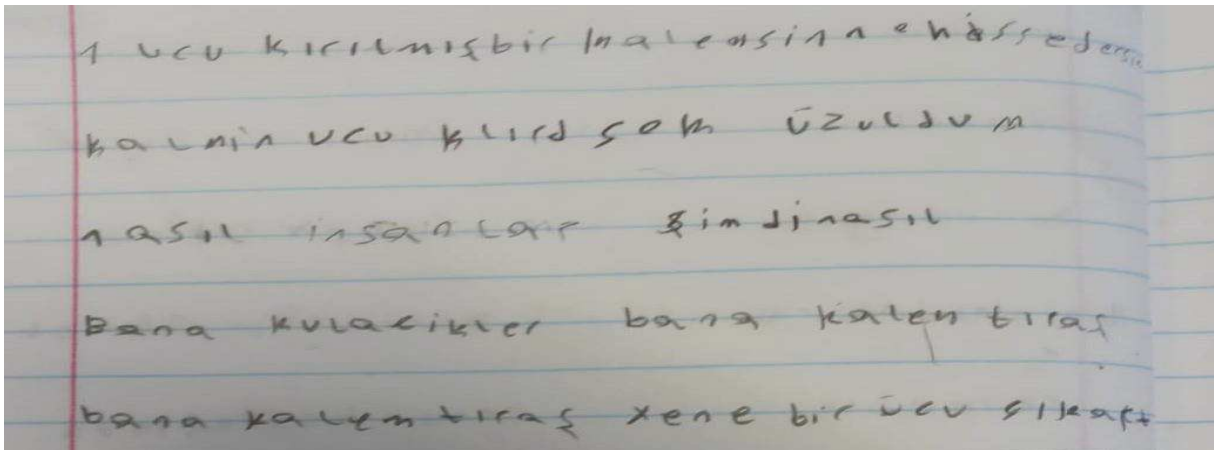 1 ucu kırılmışbir kalemsin ne hissedersin
kalmin ucu kırld çok üzuldum
nasıl insanlar şimdi nasıl
Bana kulacikler bana kalem tıraş
bana kalem tıraş yene bir ucu çıkart